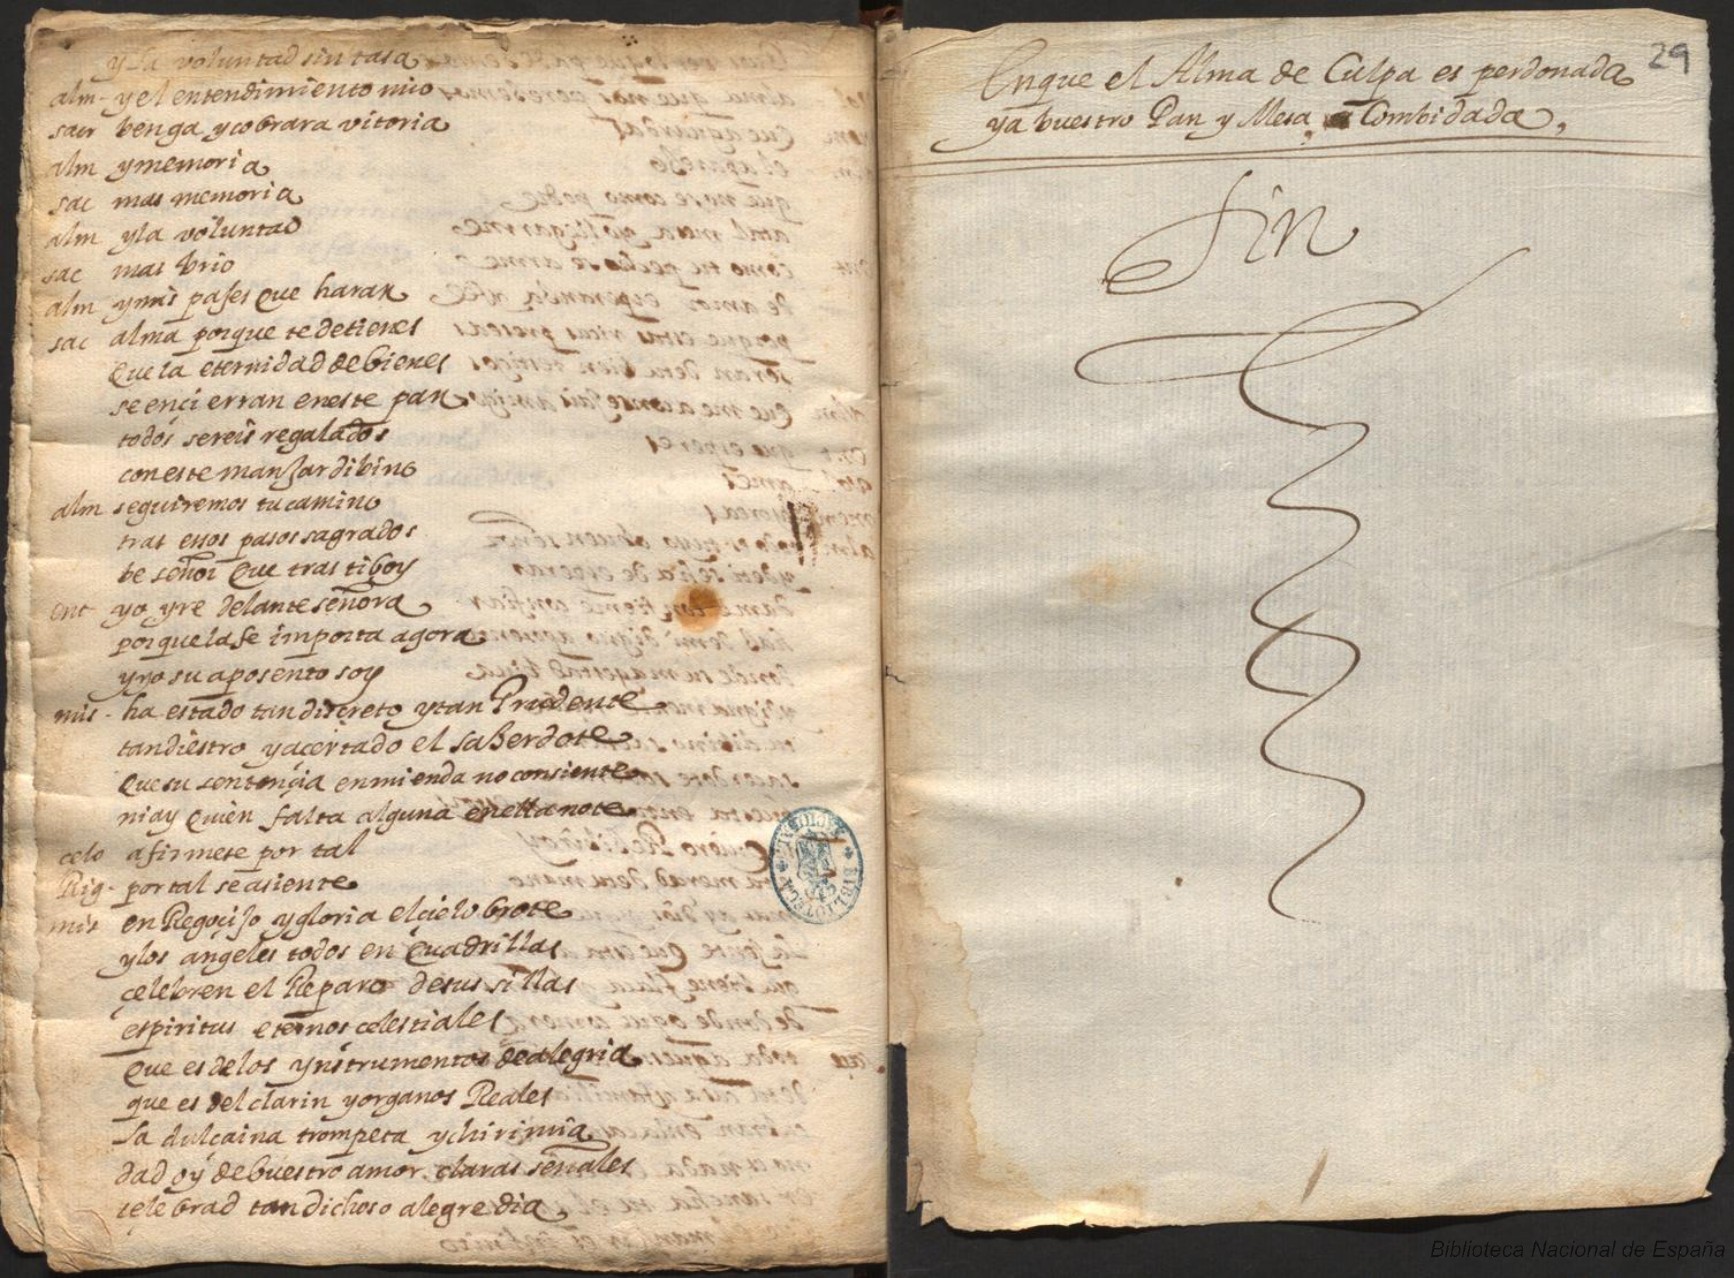 y la voluntad sin tasa
alm - y el entendimiento mio
sacr benga y cobrara vitoria
alm y memoria
sac mas memoria
alm y la voluntad
sac mas brio
alm y mis pases que haran
sac alma porque te detienes
que la eternidad de bienes
se encierran en este pan
todos sereis regalados
con este manjar dibino
alm seguiremos tu camino
tras esos pasos sagrados
be señor que tras ti boy
ent yo yre delante señora
porque la fe importa agora
y yo su aposento soy
mis - ha estado tan discreto y tan Prudente
tan diestro y acertado el saserdote
que su sentençia enmienda no consiente
ni ay quien falta alguna en ella note
celo afirmese por tal
Rig - por tal se asiente
mis en Regocijo y gloria el cielo brote
y los angeles todos en quadrillas
çelebren el Reparo de sus sillas
espiritus eternos celestiales
que es de los ynstrumentos de alegria
que es del clarin y organos Reales
la dulcaina trompeta y chirimia
dad oy de buestro amor claras señales
celebrad tan dichoso alegre dia
29
En que el Alma de Culpa es perdonada
y a buestro Pan y Mesa Combidada,
Fin
BIBLIOTECA NACIONAL
Biblioteca Nacional de España